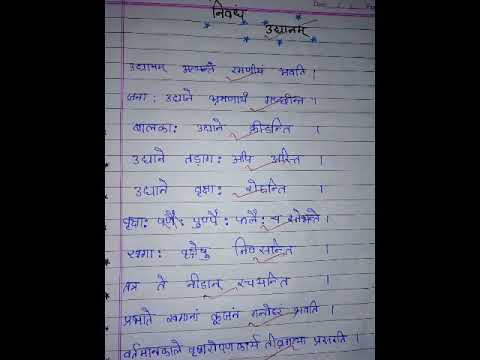 निवंध
उद्यानम्
उद्यानम् अत्यन्ते रमणीयं भवति ।
जना: उद्याने भ्रमणार्थं गच्छन्ति ।
बालका: उद्याने क्रीडन्ति ।
उद्याने तड़ाग: अपि अस्ति ।
उद्याने वृक्षा: रोहन्ति ।
वृक्षा: पर्णै: पुष्पै: फलै: च शोभन्ते ।
खगा: वृक्षेषु निवसन्ति ।
तत्र ते नीडान् रचयन्ति ।
प्रभाते खगानां कूजनं मनोहरं भवति ।
वर्तमानकाले वृक्षारोपणकार्यं तीव्रगत्या प्रसरति ।